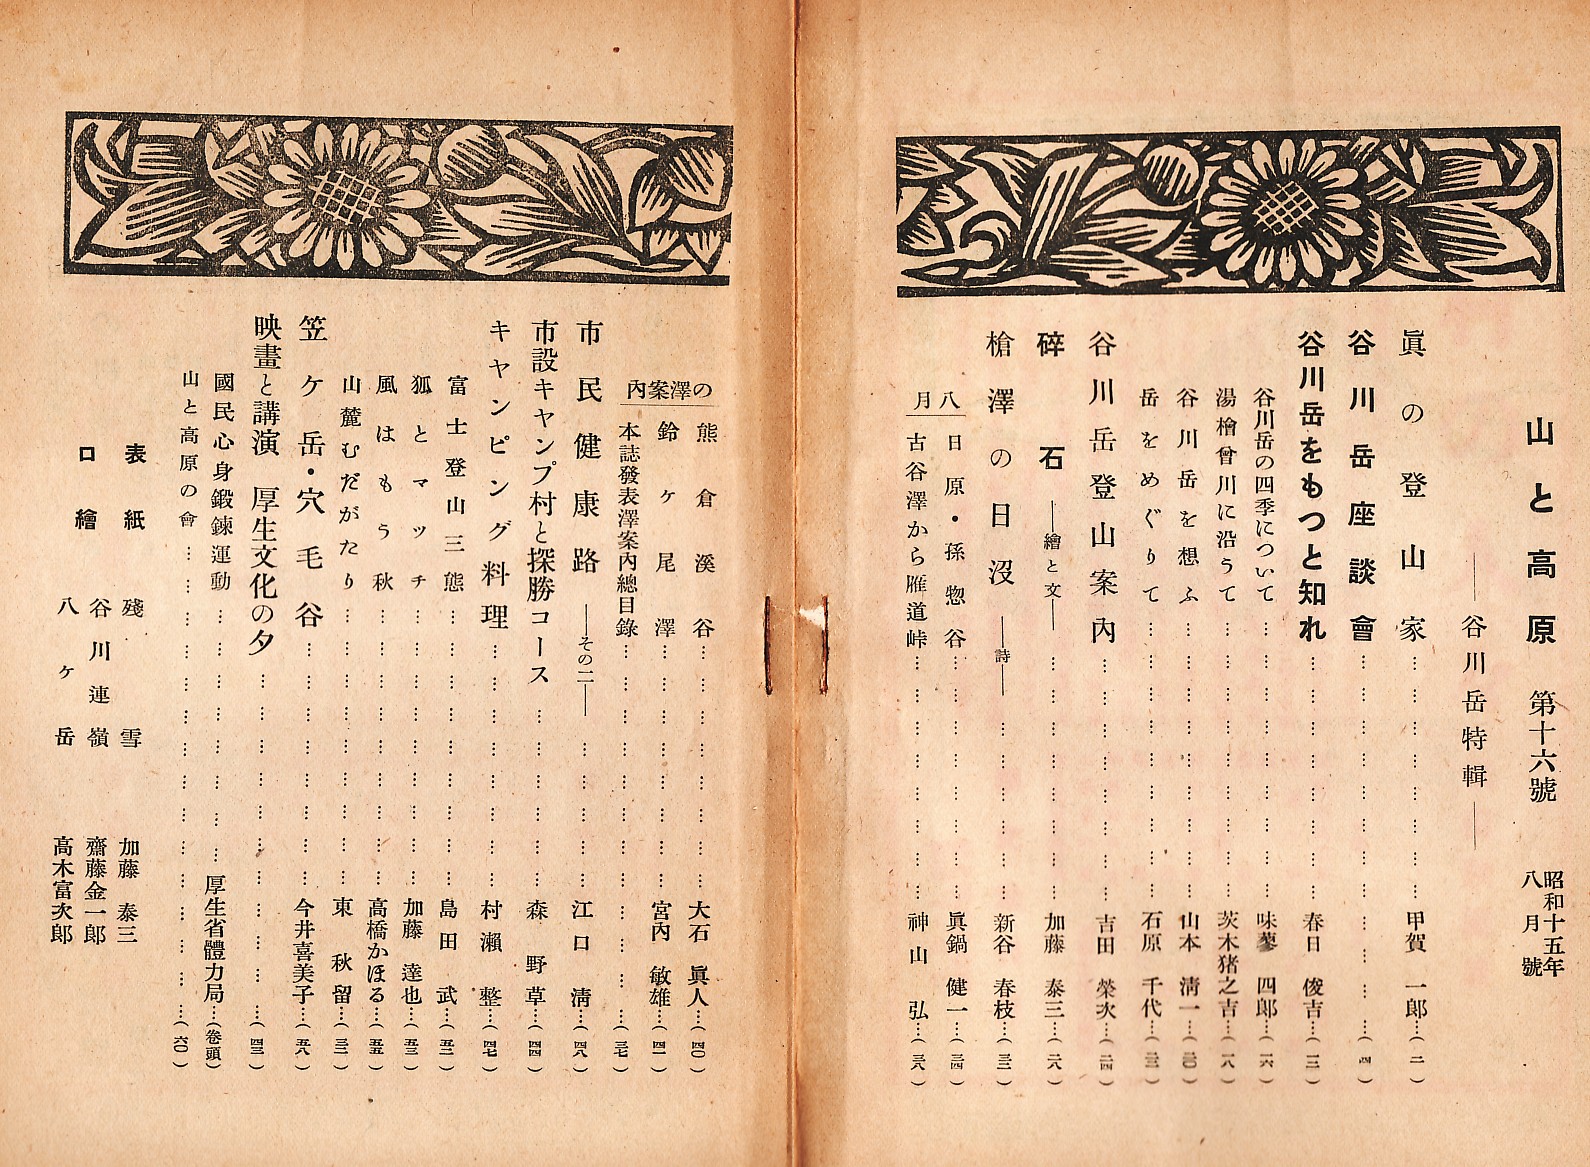 山と高原 第十六號 昭和十五年八月號
―谷川岳特輯―
眞の登山家……甲賀一郎…(二)
谷川岳座談會……(四)
谷川岳をもつと知れ……春日俊吉…(三)
谷川岳の四季について……味蓼四郎…(一六)
湯檜曾川に沿うて……茨木猪之吉…(一八)
谷川岳を想ふ……山本淸一…(二〇)
岳をめぐりて……石原千代…(二三)
谷川岳登山案內……吉田榮次…(二四)
碎石―繪と文―……加藤泰三…(二八)
槍澤の日沒―詩―……新谷春枝…(三三)
八月
日原・孫惣谷……眞鍋健一…(三四)
古谷澤から雁道峠……神山弘…(三六)
の澤案內
熊倉溪谷……大石眞人…(四〇)
鈴ヶ尾澤……宮內敏雄…(四一)
本誌發表澤案內總目錄……(三七)
市民健康路―その二―……江口淸…(四八)
市設キャンプ村と探勝コース……森野草…(四四)
キャンピング料理……村瀨整…(四七)
富士登山三態……島田武…(五二)
狐とマッチ……加藤達也…(五三)
風はもう秋……高橋かほる…(五五)
山麓むだがたり……東秋留…(三二)
笠ケ岳・穴毛谷……今井喜美子…(五八)
映畫と講演 厚生文化の夕……(四三)
國民心身鍛鍊運動……厚生省體力局…(卷頭)
山と高原の會……(六〇)
表紙 殘雪 加藤泰三
口繪 谷川連嶺 齋藤金一郎
八ヶ岳 高木富次郎